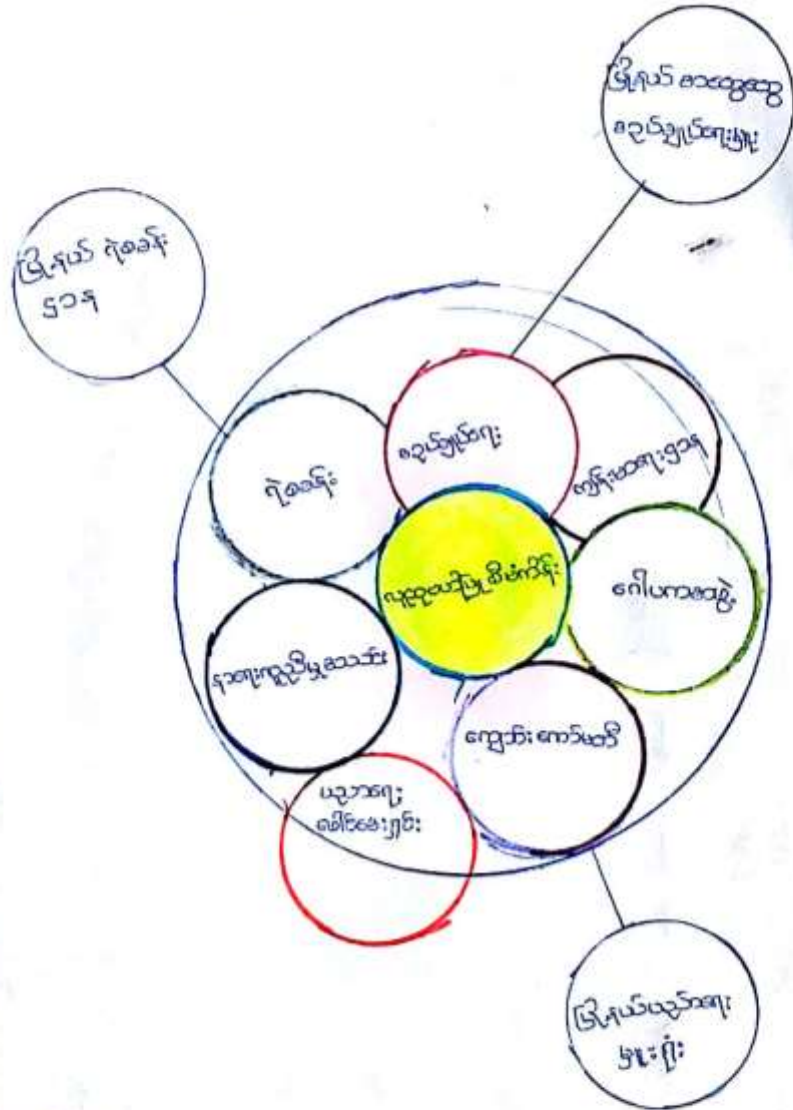 မြို့နယ် အထွေထွေ
အုပ်ချုပ်ရေးမှူး
မြို့နယ် ရဲစခန်း
ဌာန
အုပ်ချုပ်ရေး
ကျန်းမာရေးဌာန
ရဲစခန်း
လူထုဗဟိုပြု စီမံကိန်း
ဂေါပကအဖွဲ့
နာရေးကူညီမှုအသင်း
ကျောင်း ကော်မတီ
ပညာရေး
ခေါင်းဆောင်
မြို့နယ်ပညာရေး
မှူးရုံး